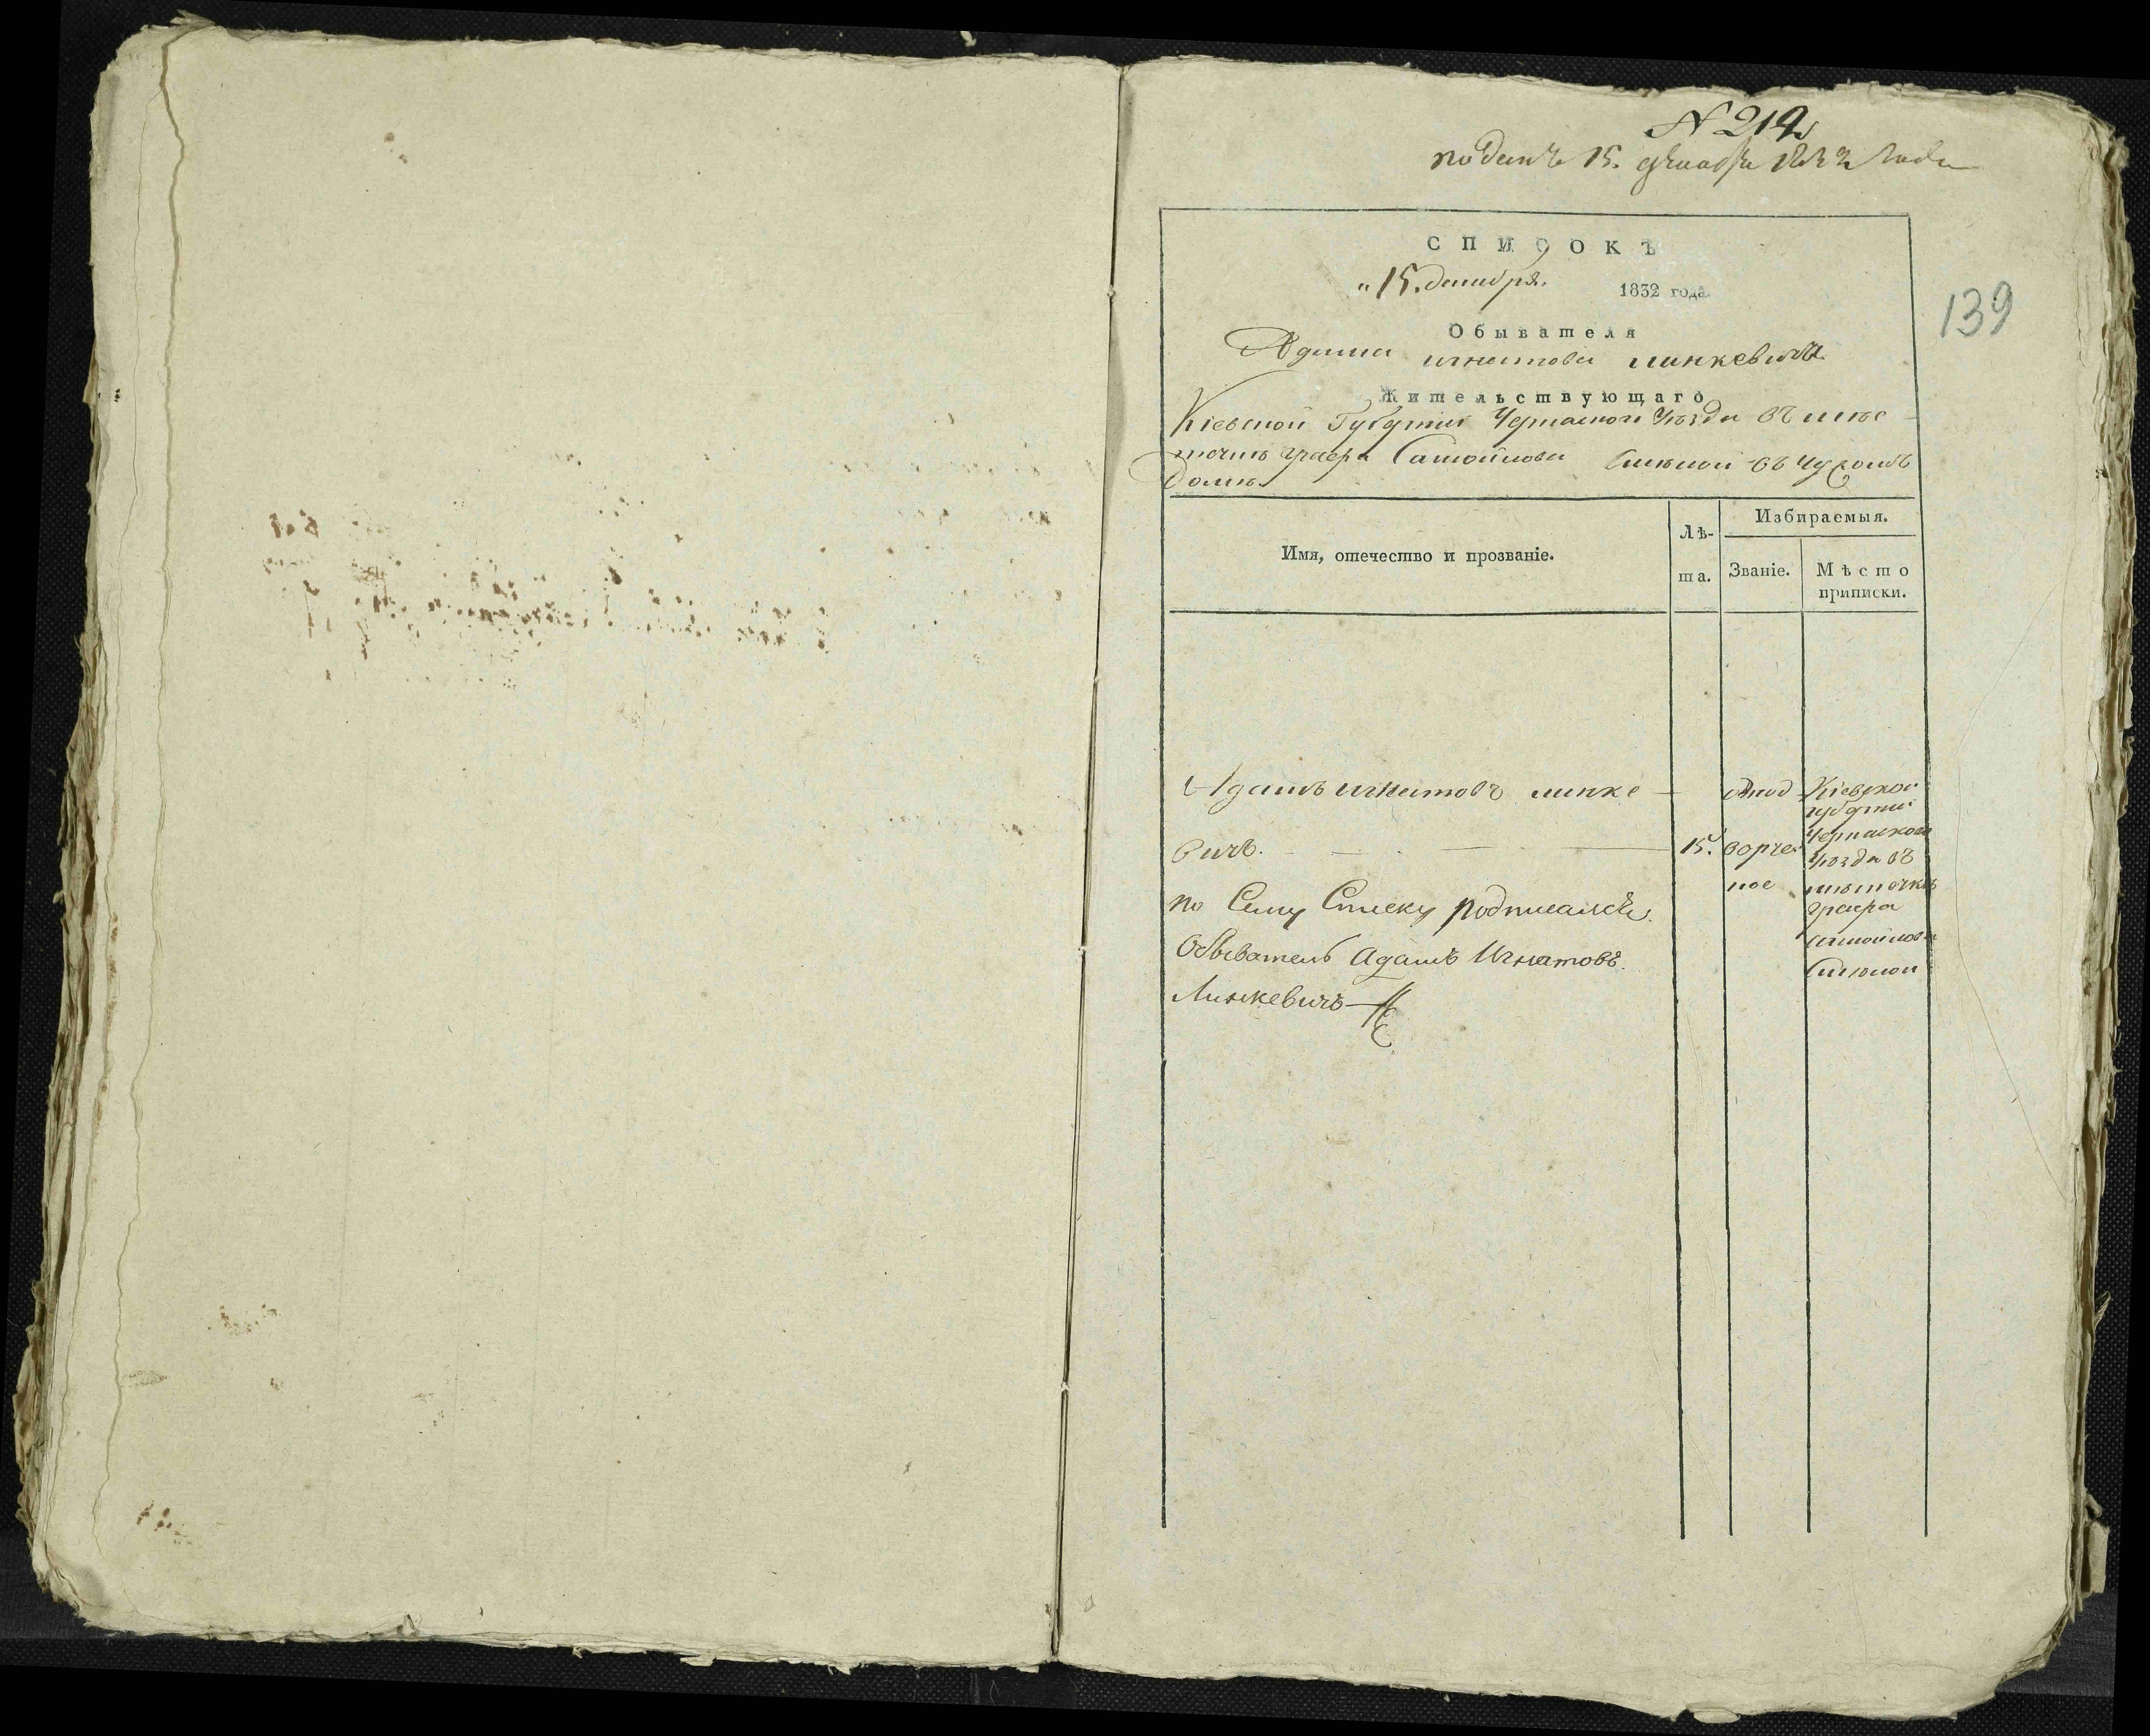 N 214
поданъ 15. декабря 1832 года
139
СПИСОКЪ
"15. декабря. 1832 года.
Обывателя
Адама игнатова линкевича
Жительствующаго
Кіевской Губерніи Черкаского Уѣзда въ мѣс
течкѣ графа Самойлова Смѣлой въ чужомъ
домѣ.
Имя, отечество и прозваніе.
Лѣ-
та.
Избираемыя.
Званіе.
Мѣсто
приписки.
Адамъ игнатовъ линке
вичъ. 15.
однод
ворче
ное
Кіевской
губерніи
Черкаского
Уѣзда въ
мѣстечкѣ
графа
амойлова
Смѣлой
по Сему Списку подписался
Обыватель Адамъ Игнатовъ
Линкевичъ